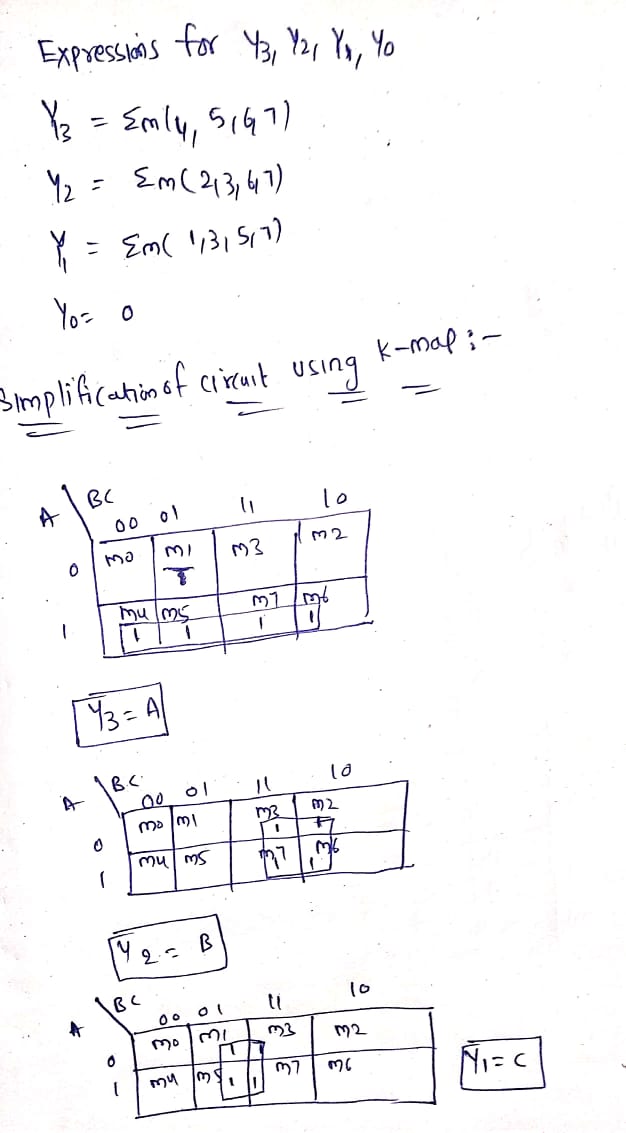 Expressions for Y3, Y2, Y1, Y0
Y3 = Σm(4, 5, 6, 7)
Y2 = Σm(2, 3, 6, 7)
Y1 = Σm(1, 3, 5, 7)
Y0 = 0
Simplification of circuit using K-map :-
A \ BC 00 01 11 10
0 m0 m1 m3 m2
1 m4 m5 m7 m6
1 1 1 1
Y3 = A
A \ B.C. 00 01 11 10
0 m0 m1 m3 m2
1 1
1 m4 m5 m7 m6
1 1
Y2 = B
A \ BC 00 01 11 10
0 m0 m1 m3 m2
1 1
1 m4 m5 m7 m6
1 1
Y1 = C